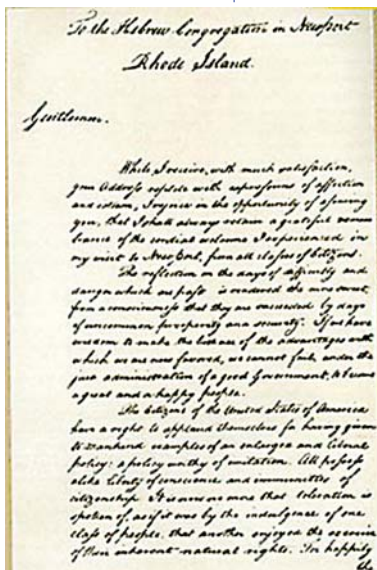 To the Hebrew Congregation in Newport
Rhode Island.
Gentlemen.
While I receive, with much satisfaction,
your Address replete with expressions of affection
and esteem, I rejoice in the opportunity of assuring
you, that I shall always retain a grateful remem
brance of the cordial welcome I experienced in
my visit to Newport, from all classes of Citizens.
The reflection on the days of difficulty and
danger which are past is rendered the more sweet,
from a consciousness that they are succeeded by days
of uncommon prosperity and security. If we have
wisdom to make the best use of the advantages with
which we are now favored, we cannot fail, under the
just administration of a good Government, to become
a great and a happy people.
The Citizens of the United States of America
have a right to applaud themselves for having given
to mankind examples of an enlarged and liberal
policy: a policy worthy of imitation. All possess
alike liberty of conscience and immunities of
citizenship. It is now no more that toleration is
spoken of, as if it was by the indulgence of one
class of people, that another enjoyed the exercise
of their inherent natural rights. For happily
the